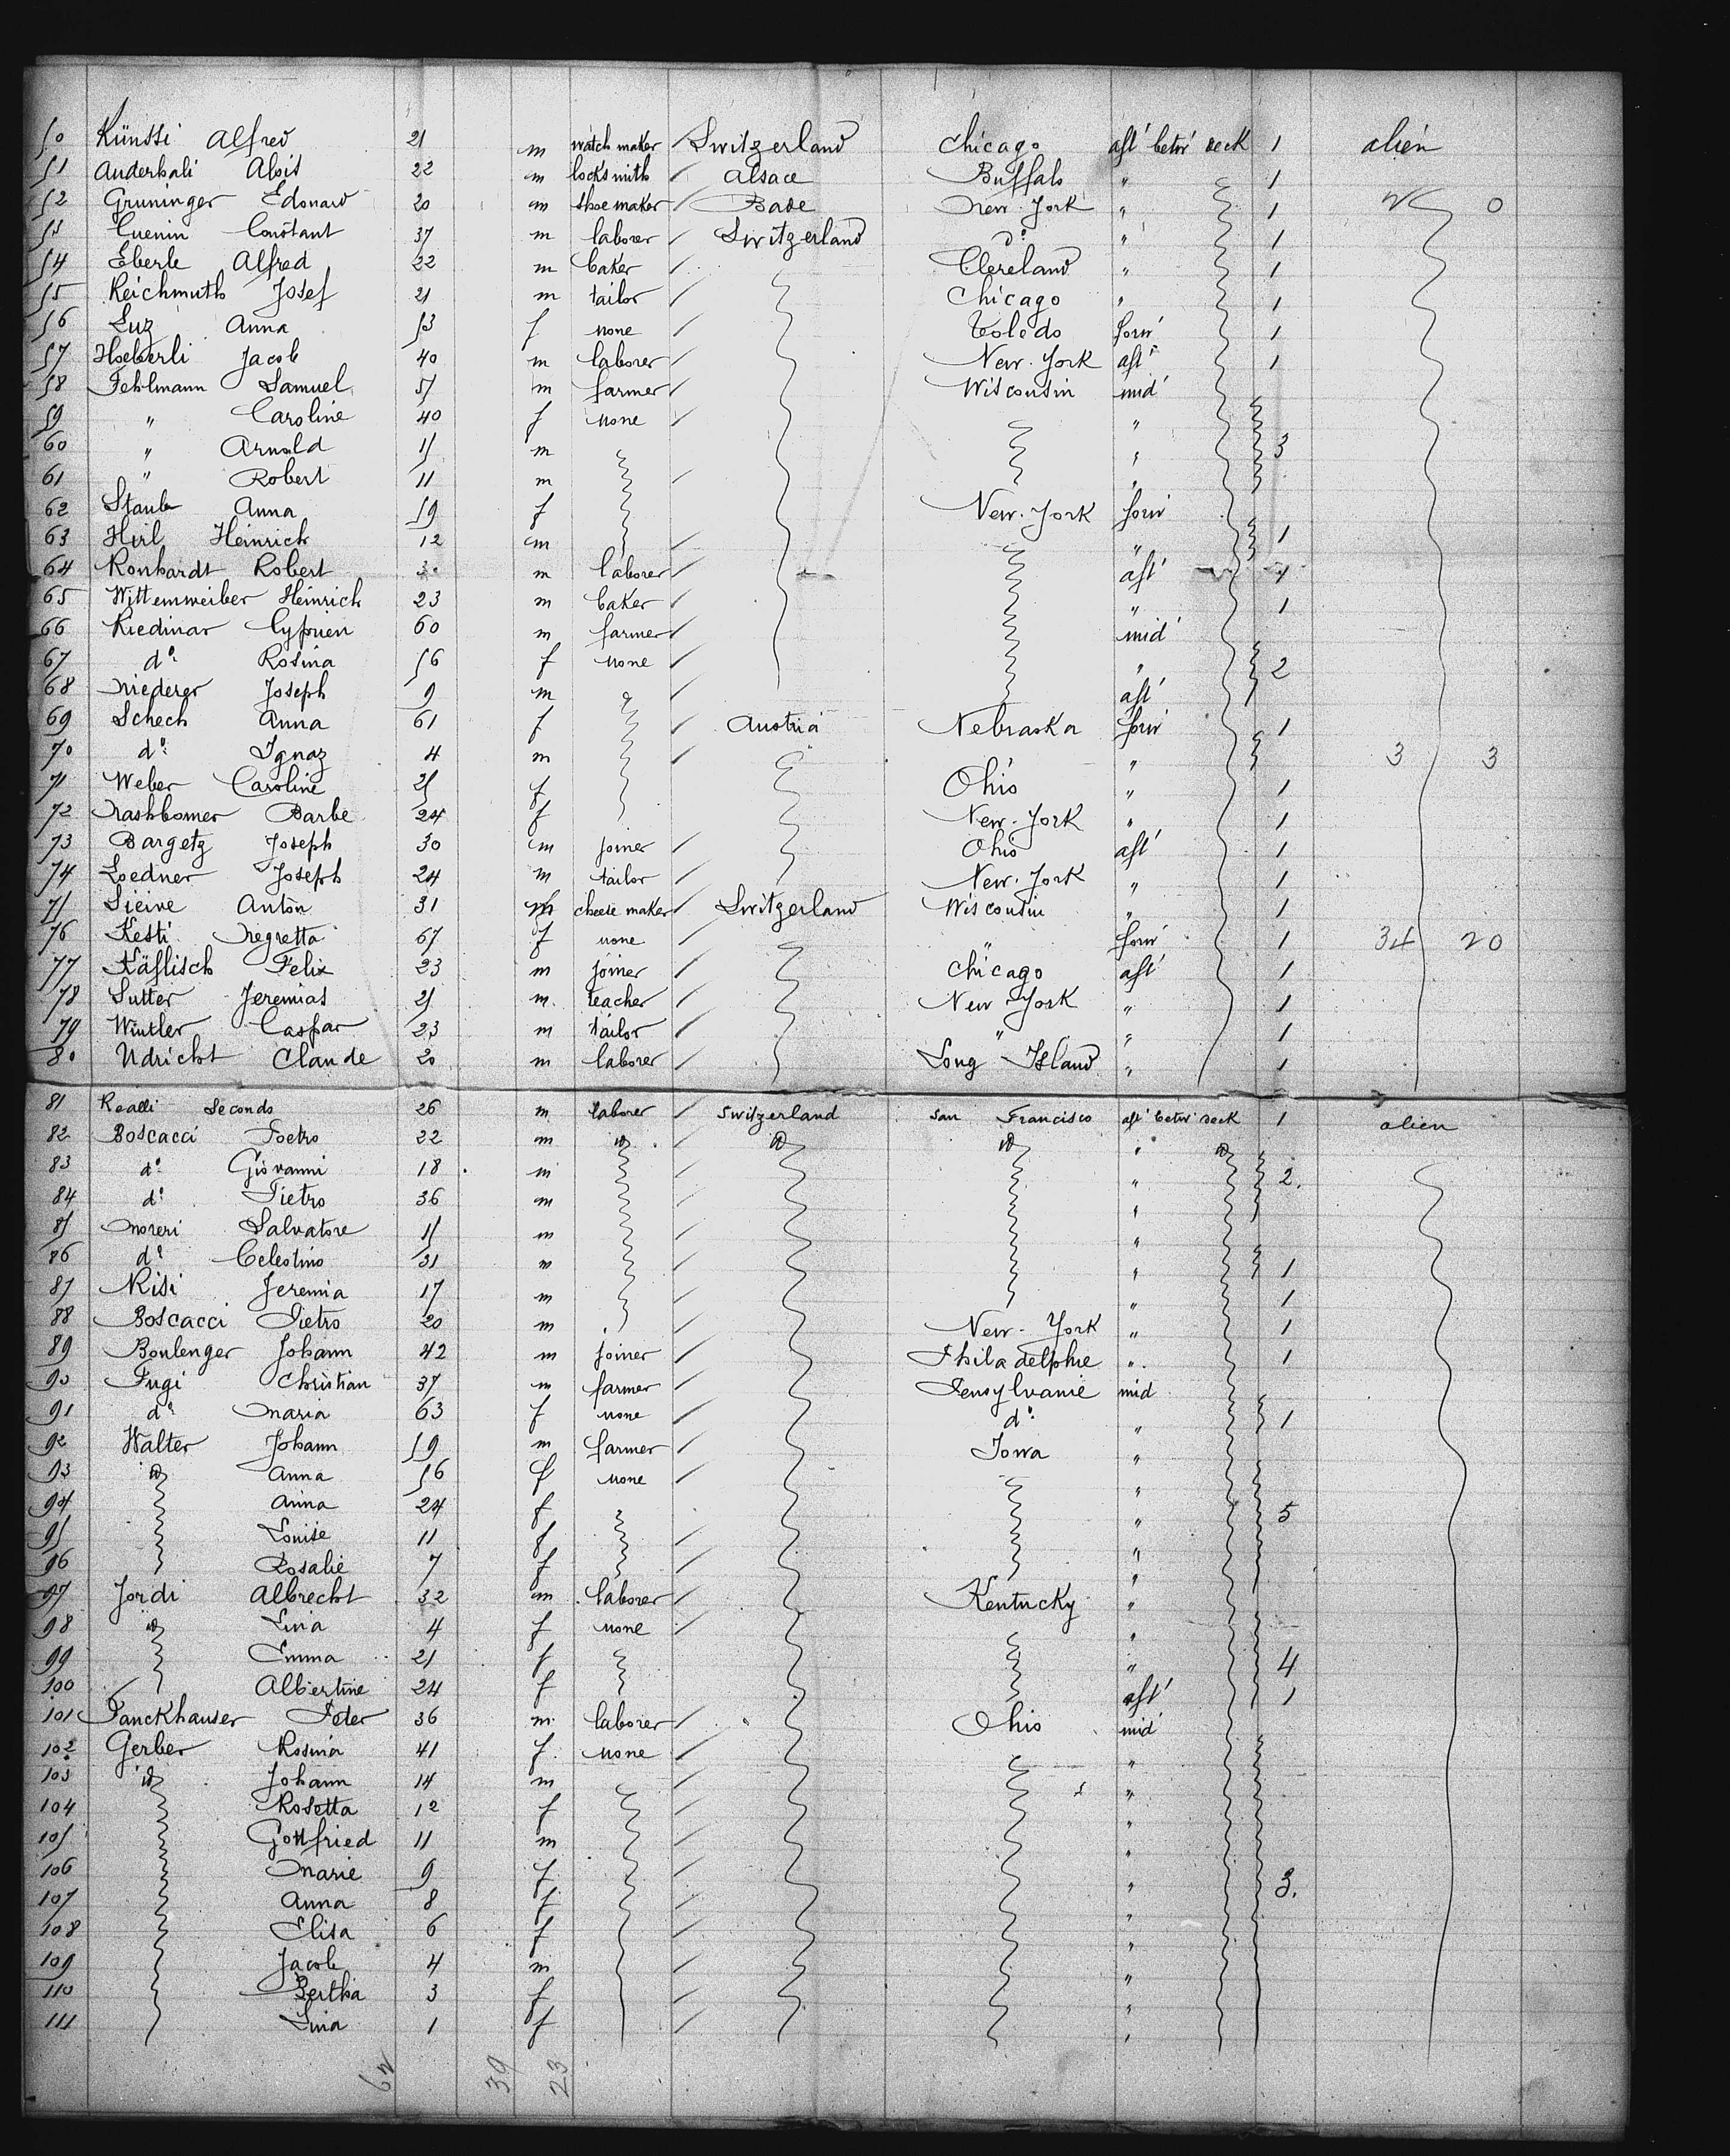 50 Künsti Alfred 21 m watch maker Switzerland Chicago aft' betw' deck 1 alien
51 Anderhali Alois 22 m locksmith Alsace Buffalo " 1
52 Gruninger Edouard 20 m shoe maker Bade New-York " 1 0
53 Cuenin Constant 37 m laborer Switzerland d° " 1
54 Eberle Alfred 22 m baker Cleveland " 1
55 Reichmuth Josef 21 m tailor Chicago " 1
56 Luz Anna 53 f none Toledo forw' 1
57 Haeberli Jacob 40 m laborer New-York aft' 1
58 Fehlmann Samuel 51 m farmer Wisconsin mid'
59 " Caroline 40 f none "
60 " Arnold 15 m " 3
61 " Robert 11 m "
62 Staub Anna 59 f New-York forw'
63 Hirl Heinrich 12 m " 1
64 Ronhardt Robert m laborer aft' 1
65 Wittemweiber Heinrich 23 m baker " 1
66 Riedinar Cyprien 60 m farmer mid'
67 d° Rosina 56 f none " 2
68 Niederer Joseph 9 m aft'
69 Schech Anna 61 f Austria Nebraska forw' 1
70 d° Ignaz 4 m " 3 3
71 Weber Caroline 25 f Ohio " 1
72 Trashbomer Barbe 24 f New-York " 1
73 Bargetz Joseph 30 m joiner Ohio aft' 1
74 Loedner Joseph 24 m tailor New-York " 1
75 Sieive Anton 31 m cheese maker Switzerland Wisconsin " 1
76 Kesti Negretta 67 f none " forw' 1 34 20
77 Käflisch Felix 23 m joiner Chicago aft' 1
78 Sutter Jeremias 25 m. teacher New York " 1
79 Wintler Caspar 23 m tailor " " 1
80 Udricht Claude 20 m laborer Long-Island " 1
81 Realli Secondo 26 m laborer Switzerland San Francisco aft' betw' deck 1 alien
82 Boscacci Poetro 22 m id id id " id
83 d° Giovanni 18 m " 2.
84 d° Pietro 36 m "
85 Moreri Salvatore 15 m "
86 d° Celestino 31 m " 1
87 Risi Jeremia 17 m " 1
88 Boscacci Pietro 20 m New-York " 1
89 Boulenger Johann 42 m joiner Philadelphie " 1
90 Fugi Christian 37 m farmer Pensylvanie mid
91 d° Maria 63 f none d° " 1
92 Walter Johann 59 m farmer Iowa "
93 id Anna 56 f none "
94 Anna 24 f " 5
95 Louise 11 f "
96 Rosalie 7 f "
97 Jordi Albrecht 32 m laborer Kentucky "
98 id Lina 4 f none "
99 Emma 21 f " 4
100 Albertine 24 f aft' 1
101 Fanckhauser Peter 36 m laborer Ohio mid'
102 Gerber Rosina 41 f none "
103 id Johann 14 m "
104 Rosetta 12 f "
105 Gottfried 11 m "
106 Marie 9 f " 3.
107 Anna 8 f "
108 Elisa 6 f "
109 Jacob 4 m "
110 Bertha 3 f "
111 Lina 1 f "
62 39 23